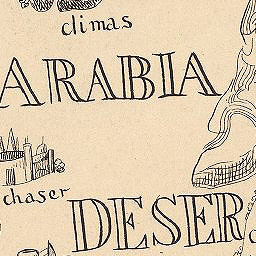 climas
ARABIA
chaser
DESER